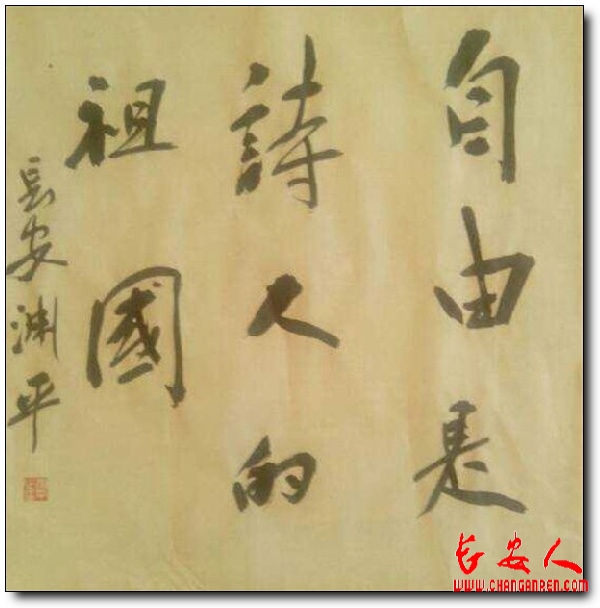 自由是
詩人的
祖國
長安渊平
长安人
WWW.CHANGANREN.COM